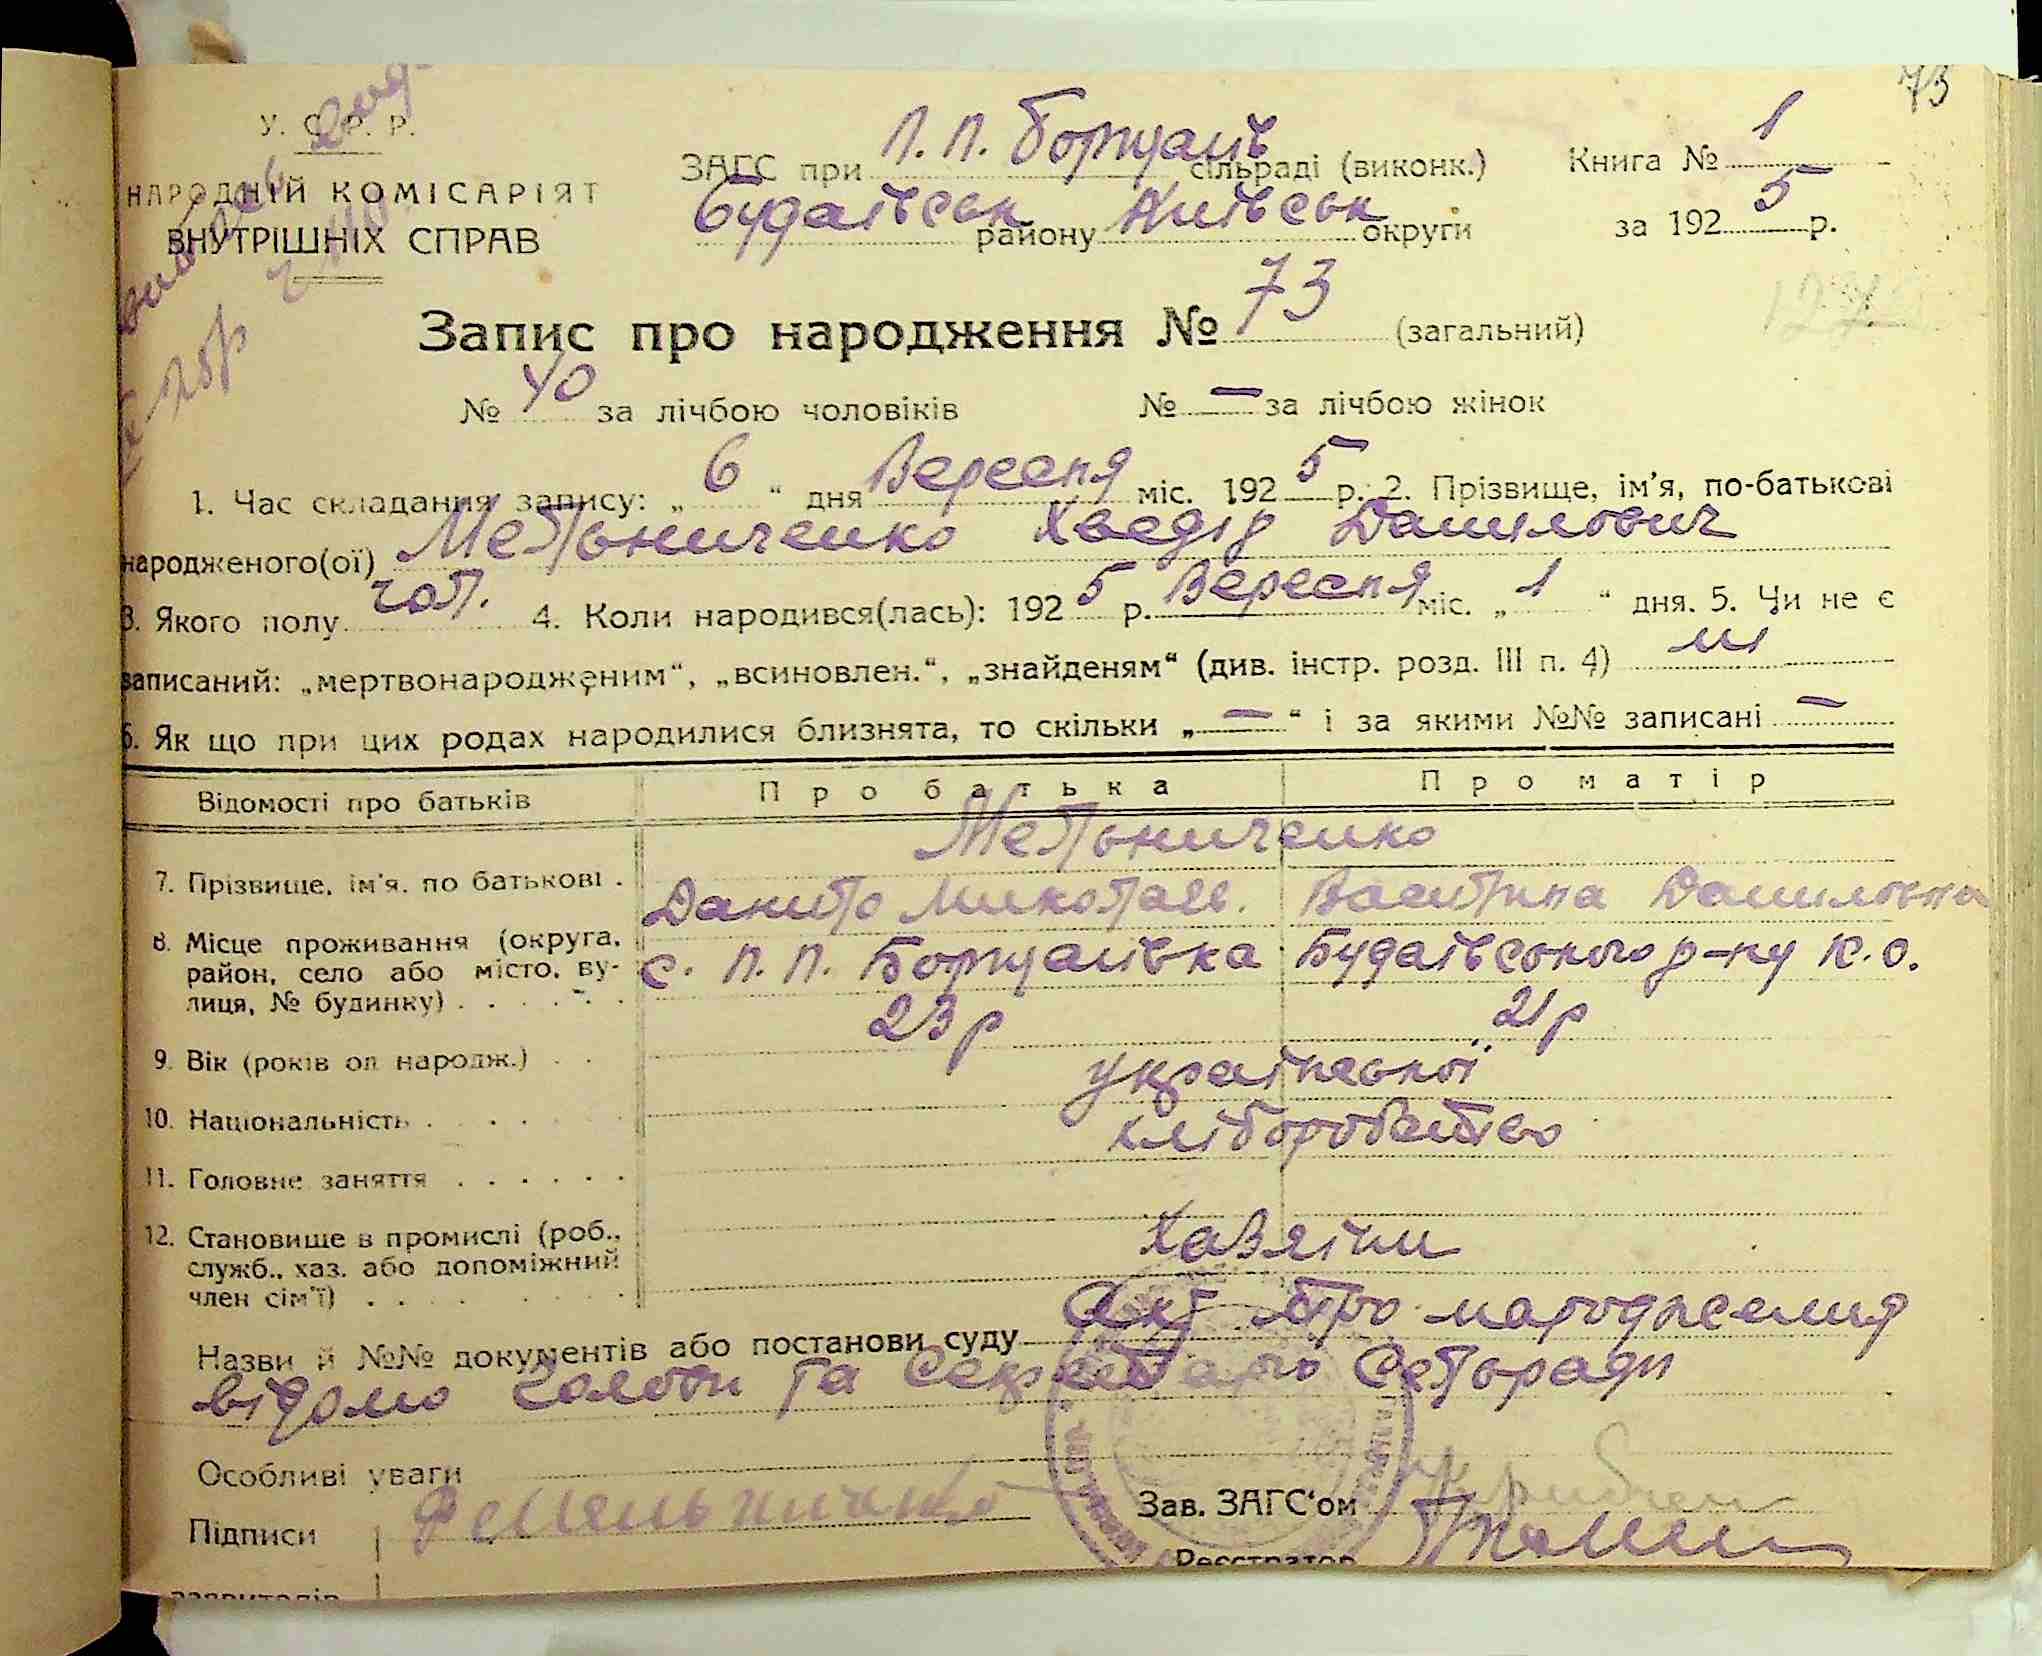 73
У. С. Р. Р.
НАРОДНІЙ КОМІСАРІЯТ
ВНУТРІШНІХ СПРАВ
ЗАГС при П. П. Борщагів сільраді (виконк.) Книга № 1
Будаївськ району Київськ округи за 1925 р.
Запис про народження № 73 (загальний)
№ 40 за лічбою чоловіків № — за лічбою жінок
1. Час складання запису: „ 6 “ дня Вересня міс. 1925 р. 2. Прізвище, ім'я, по-батькові
народженого(ої) Мельниченко Хведір Данилович
3. Якого полу чол. 4. Коли народився(лась): 1925 р. Вересня міс. „ 1 “ дня. 5. Чи не є
записаний: „мертвонародженим“, „всиновлен.“, „знайденям“ (див. інстр. розд. III п. 4) ні
6. Як що при цих родах народилися близнята, то скільки „ — “ і за якими №№ записані —
Відомості про батьків Про батька Про матір
Мельниченко
7. Прізвище, ім'я, по батькові . Данило Миколаєв. Василина Даниловна
8. Місце проживання (округа,
район, село або місто, ву-
лиця, № будинку) . . . . . с. П. П. Борщагівка Будаївського р-ну К.О.
9. Вік (років од народж.) . . 23 р 21 р
10. Національність . . . . . української
11. Головне заняття . . . . . . хліборобство
12. Становище в промислі (роб.,
служб., хаз. або допоміжний
член сім'ї) . . . . . . Хазяїни
Назви й №№ документів або постанови суду Акт про народження
відомо Голови та Секретарю Сельради
Особливі уваги
Підписи Ф Мельниченко Зав. ЗАГС'ом
Реєстратор
заявителів